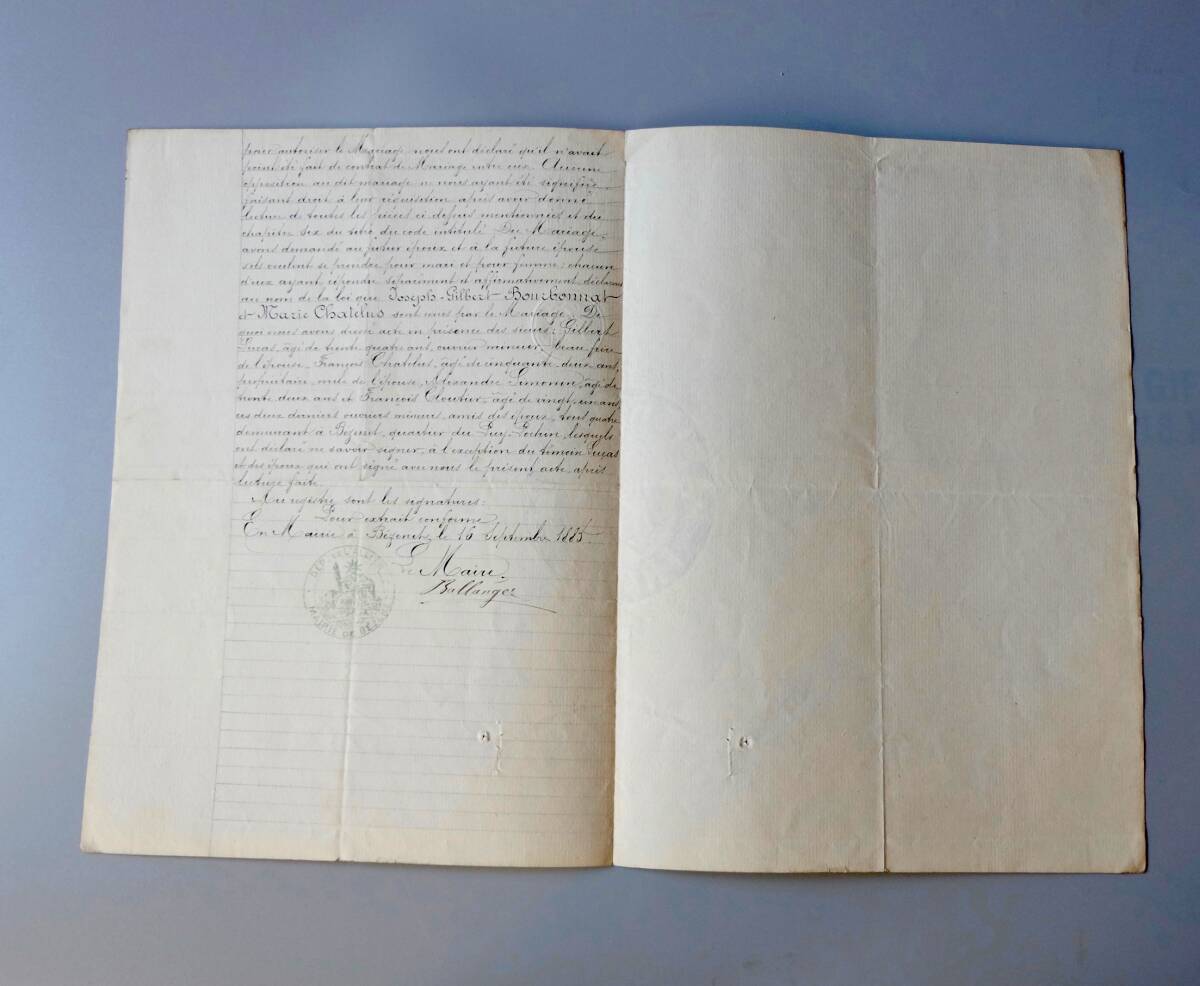 pour autoriser le Mariage nous ont déclaré qu'il n'avait
point été fait de contrat de Mariage entre eux. Aucune
opposition au dit mariage ne nous ayant été signifiée
faisant droit à leur réquisition après avoir donné
lecture de toutes les pièces ci dessus mentionnées et du
chapitre six du titre du code intitulé Du Mariage,
avons demandé au futur époux et à la future épouse
s'ils veulent se prendre pour mari et pour femme; chacun
d'eux ayant répondu séparément et affirmativement déclarons
au nom de la loi que Joseph-Gilbert Bourbonnat
et Marie Chatelus sont unis par le Mariage. De
quoi nous avons dressé acte en présence des sieurs: Gilbert
Lucas, âgé de trente quatre ans, ouvrier mineur, beau frère
de l'épouse, François Chatelus, âgé de cinquante-deux ans,
propriétaire, oncle de l'épouse, Alexandre Simonin, âgé de
trente deux ans et François Cloutier, âgé de vingt-un ans,
ces deux derniers ouvriers mineurs, amis des époux, tous quatre
demeurant à Bézenet, quartier du lesquels
ont déclaré ne savoir signer, à l'exception du témoin Lucas
et des époux qui ont signé avec nous le présent acte après
lecture faite.
Au registre sont les signatures:
Pour extrait conforme
En Mairie à Bézenet, le 16 Septembre 1885.
Le Maire,
Ballanger
MAIRIE DE